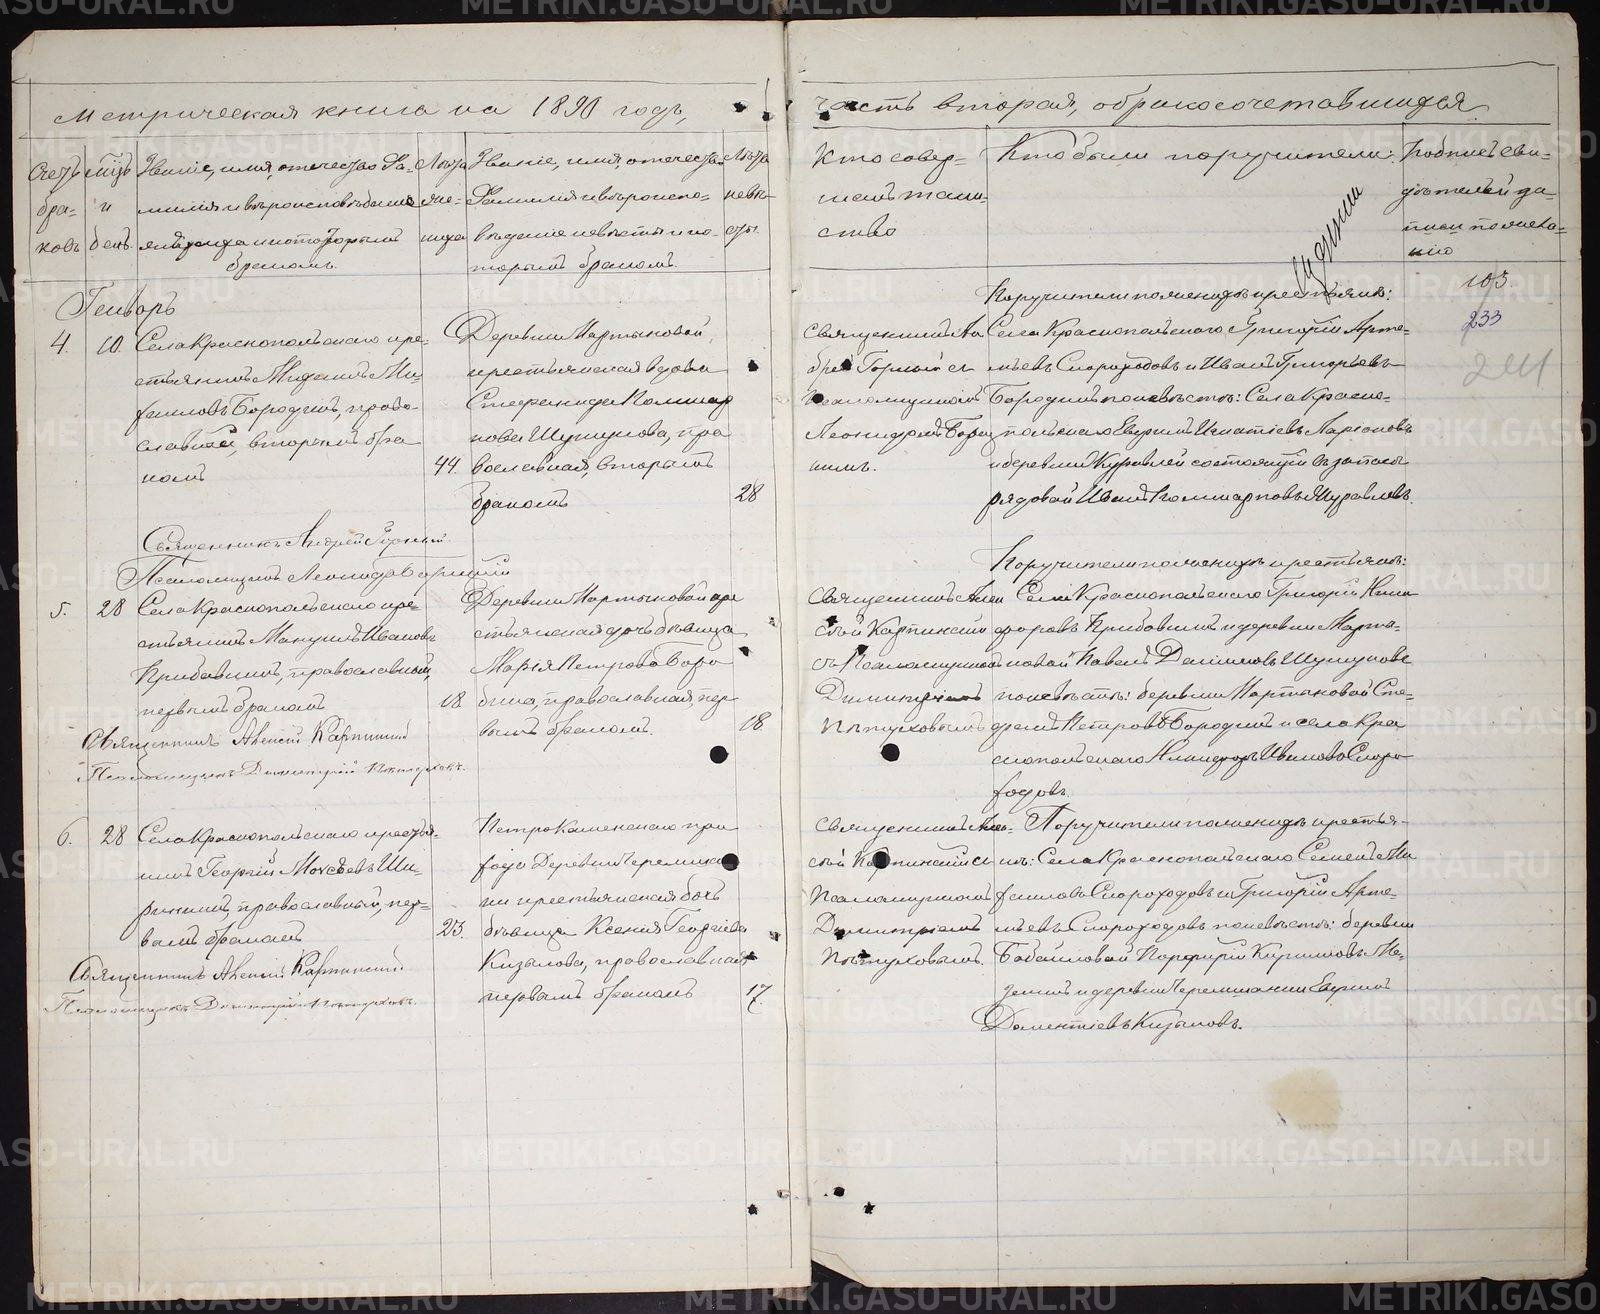 Метрическая книга на 1890 годъ,
часть вторая, о бракосочетавшихся
Счетъ бра- ковъ
Мцъ и день
Званіе, имя, отчество, фа-
милія и вѣроисповѣданіе
жениха и которымъ
бракомъ.
Лѣта же- ниха
Званіе, имя, отчество
фамилія и вѣроиспо-
вѣданіе невѣсты и ко-
торымъ бракомъ.
Лѣта невѣ- сты.
Кто совер-
шалъ таин-
ство
Кто были поручители.
Подпись сви-
дѣтелей за-
писи по жела-
нію
103
233
241
Генварь
4.
10.
Села Краснопольскаго кре-
стьянинъ Ми-
хаиловъ Бородинъ, право-
славный, вторымъ бра
комъ
44.
Деревни Мартыновой,
крестьянская вдова
Стефанида Поликар
пова Шушунова, пра
вославная, вторымъ
бракомъ
28
Священникъ Ан
дрей Горный съ
Псаломщикомъ
Леонидомъ
Поручители по женихѣ крестьяне:
Села Краснопольскаго Григорій Арте-
мьевъ Скороходовъ и Иванъ Григорьевъ
Бородинъ по невѣстѣ: Села Красно-
польскаго Игнатіевъ Ларіоновъ
и деревни состоящій въ запасѣ
рядовой Иванъ Поликарповъ Журавлевъ.
Священникъ Андрей Горный
Псаломщикъ Леонидъ
5.
28
Села Краснопольскаго кре-
стьянинъ Мануилъ Ивановъ
Прибавкинъ, православный,
первымъ бракомъ
18
Деревни Мартыновой кре
стьянская дочь дѣвица
Марія Петрова Боро
дина, православная, пер
вымъ бракомъ.
18.
Священникъ Але
ксѣй Карпинскій
съ Псаломщикомъ
Димитріемъ
Пѣтуховымъ
Поручители по женихѣ крестьяне:
Села Краснопольскаго Григорій Ники
форовъ Прибавкинъ и деревни Марты-
новой Павелъ Шушуновъ
по невѣстѣ: деревни Мартыновой
Петровъ Бородинъ и села Кра
снопольскаго Никаноръ Ивановъ Скоро
ходовъ.
Священникъ Алексій Карпинскій
Псаломщикъ Димитрій Пѣтуховъ.
6.
28
Села Краснопольскаго крестья-
нинъ Георгій Моѵсеевъ Ши-
ринкинъ, православный, пер-
вымъ бракомъ
23.
Петрокаменскаго при
хода Деревни Черемшан
ки крестьянская дочь
дѣвица Ксенія Георгіева
Кизылова, православная,
первымъ бракомъ
17.
Священникъ Але-
ксѣй Карпинскій съ
Псаломщикомъ
Димитріемъ
Пѣтуховымъ.
Поручители по женихѣ крестья-
не: Села Краснопольскаго Семенъ Ми
хаиловъ Скороходовъ и Григорій Арте-
мьевъ Скороходовъ по невѣстѣ: деревни
Бабайловой Порфирій Кириловъ
и деревни Черемшанки
Дометіевъ Кизыловъ.
Священникъ Алексій Карпинскій
Псаломщикъ Димитрій Пѣтуховъ.
METRIKI.GASO-URAL.RU